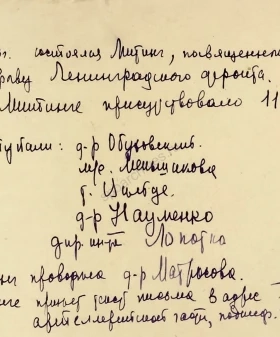 г. состоялся митинг, посвященн
раву Ленинградского фронта.
Митинге присутствовало 11
тупали: д-р Обуховский.
м/с. Меньшикова
т.
д-р Науменко
дир. ин-та Лопотко
нг проводила д-р Матросова.
нге принят письма в адрес
артиллерийской части,